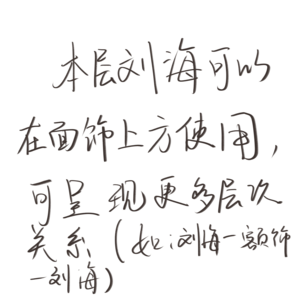 本层刘海可以
在面饰上方使用，
可呈现更多层次
关系（如：刘海一额饰
一刘海）